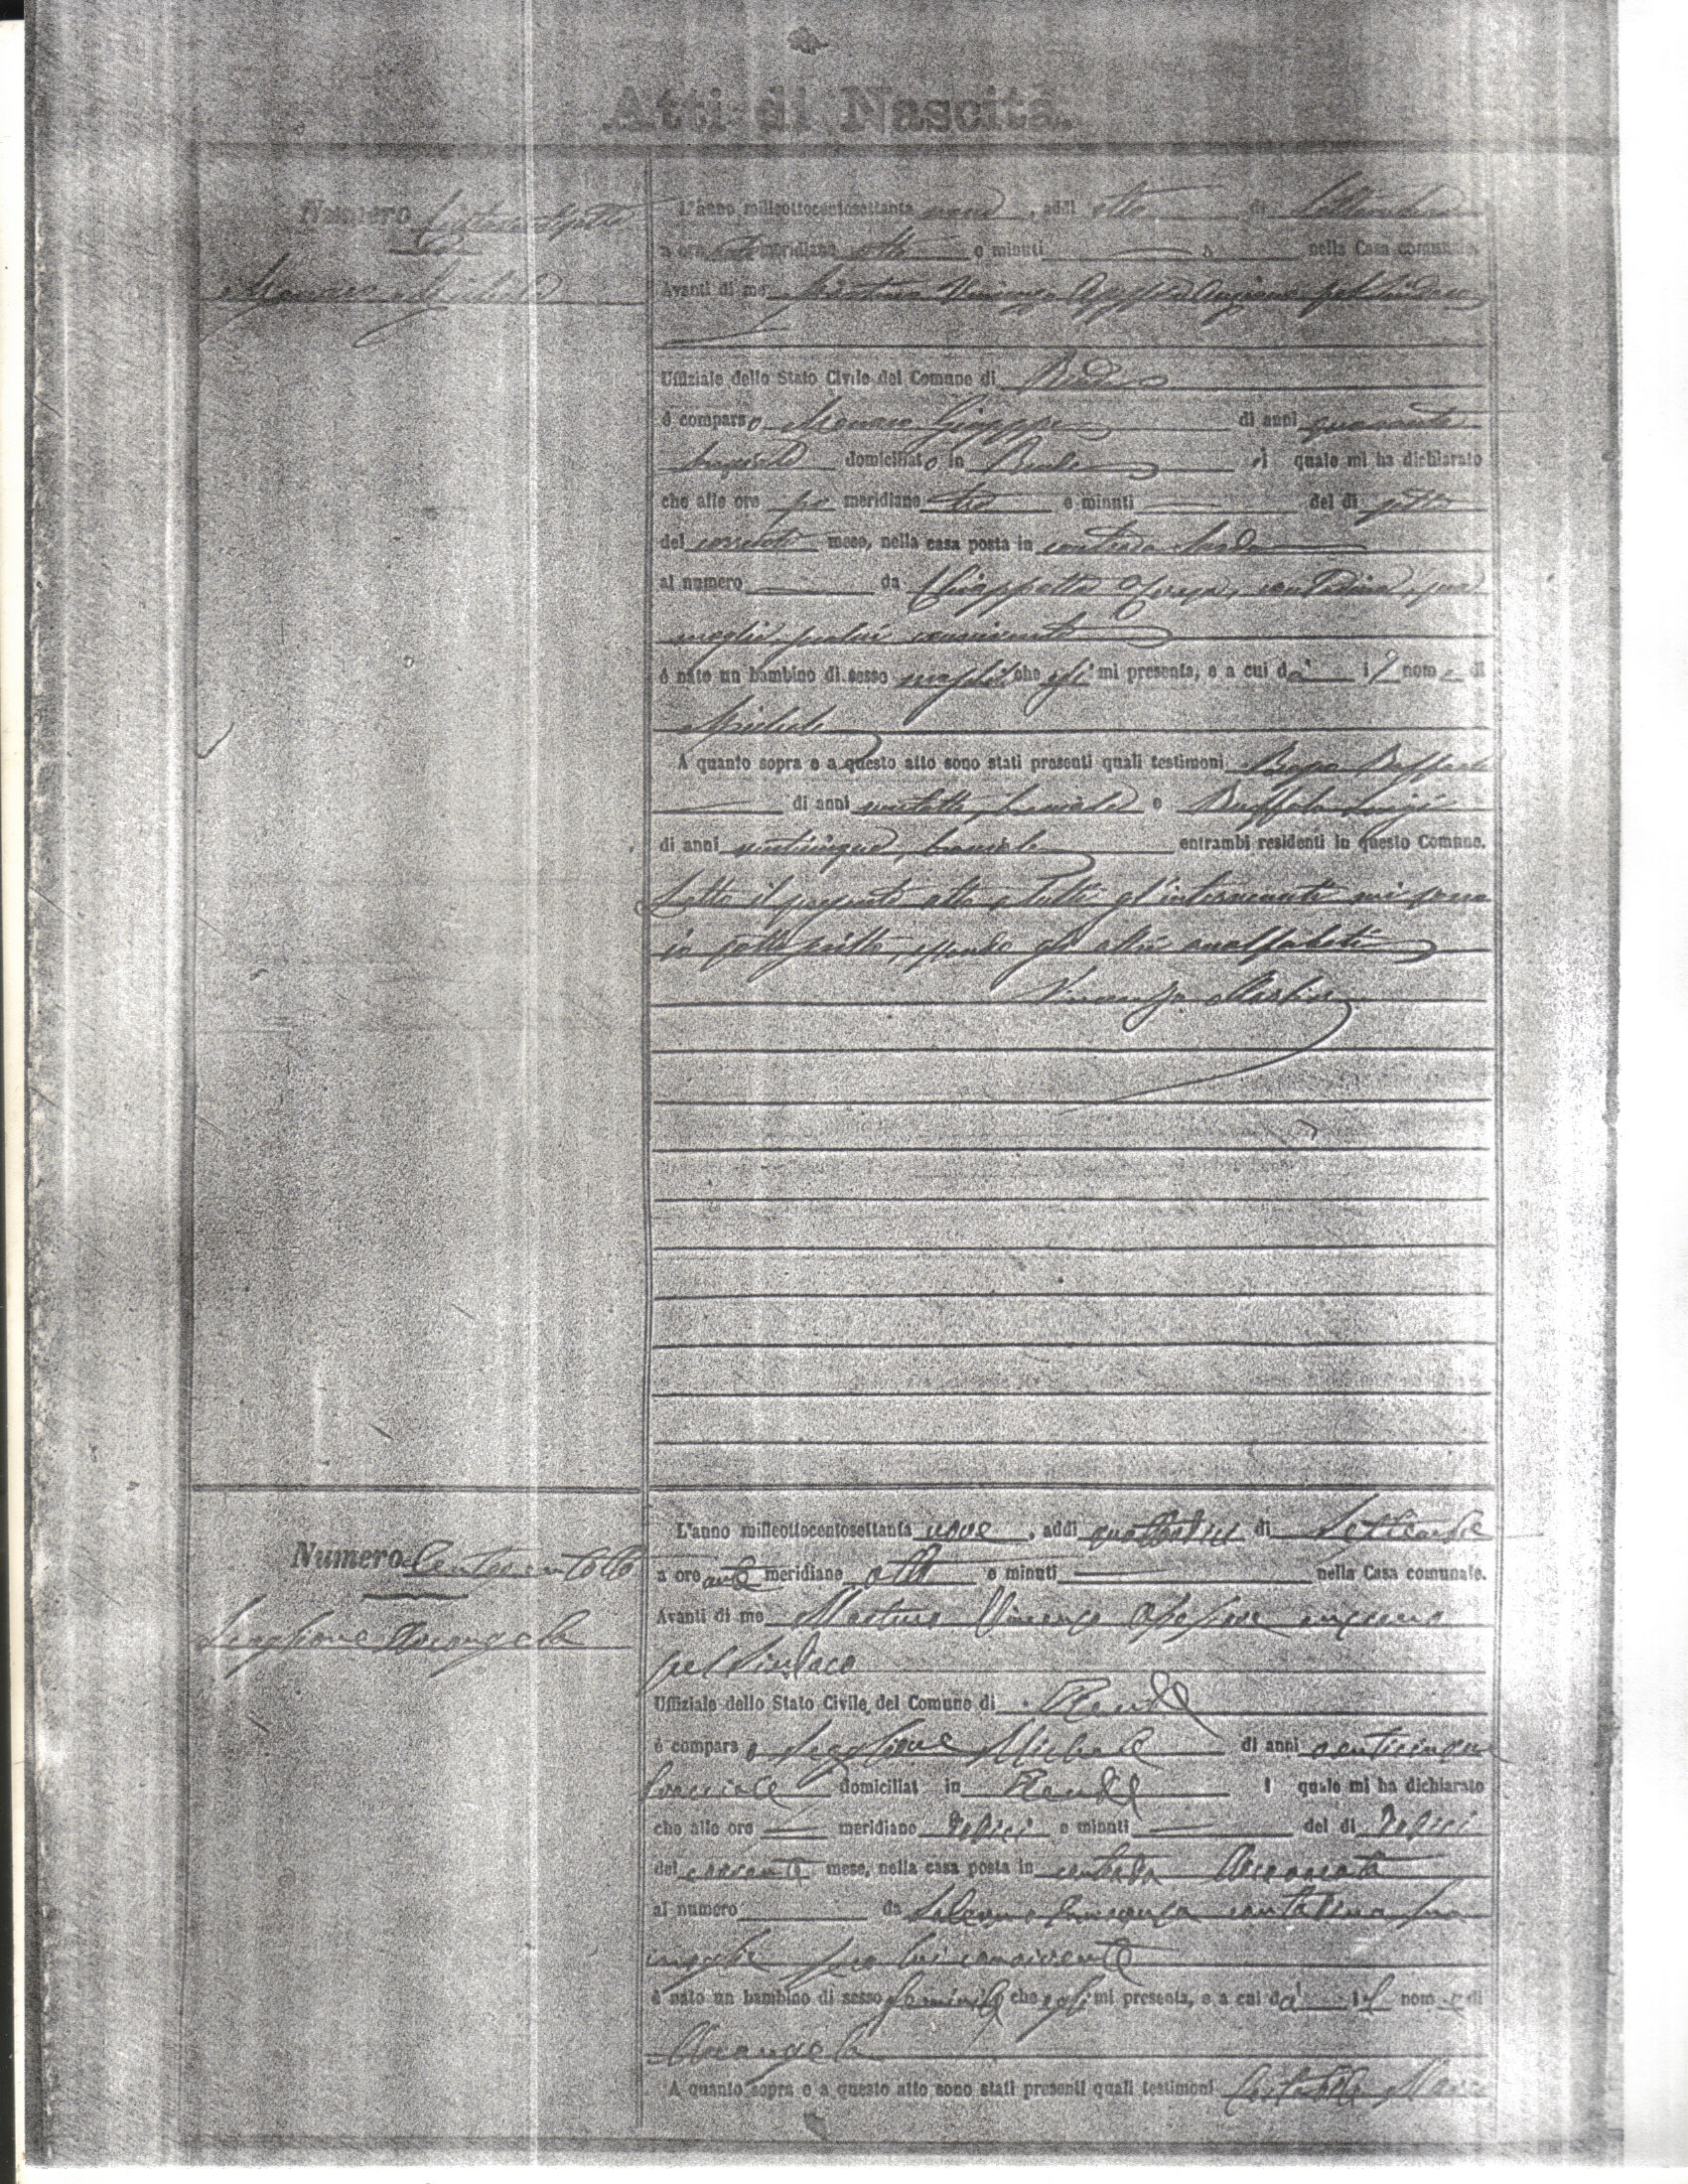 Atti di Nascita.
Numero
Monaco Michele
L'anno milleottocentosettanta nove, addì otto di Settembre
a ore ante meridiane otto e minuti a nella Casa comunale.
Avanti di me Martino Vincenzo Assessore Anziano pel Sindaco
Uffiziale dello Stato Civile del Comune di Rende
è comparso Monaco Giuseppe di anni quaranta
bracciale domiciliato in Rende il quale mi ha dichiarato
che alle ore po meridiane tre e minuti del dì sette
del corrente mese, nella casa posta in contrada
al numero da Chiappetta contadina, sua
moglie seco lui convivente
è nato un bambino di sesso maschile che egli mi presenta, e a cui dà il nome di
Michele
A quanto sopra e a questo atto sono stati presenti quali testimoni Raffaele
di anni bracciale e Buffola Luigi
di anni venticinque, bracciale entrambi residenti in questo Comune.
Letto il presente atto a tutti gl'intervenuti mi sono
io sottoscritto, essendo gli altri analfabeti
Vincenzo Martino
Numero Centoventotto
Scaglione Arcangela
L'anno milleottocentosettanta nove, addì quattordici di Settembre
a ore ante meridiane otto e minuti nella Casa comunale.
Avanti di me Martino Vincenzo Assessore anziano
pel Sindaco
Uffiziale dello Stato Civile del Comune di Rende
è comparso Scaglione Michele di anni venticinque
bracciale domiciliat in Rende l quale mi ha dichiarato
che alle ore meridiane dodici e minuti del dì dodici
del corrente mese, nella casa posta in contrada Arcavacata
al numero da Salerno Vincenza contadina sua
moglie seco lui convivente
è nato un bambino di sesso feminile che egli mi presenta, e a cui dà il nome di
Arcangela
A quanto sopra e a questo atto sono stati presenti quali testimoni